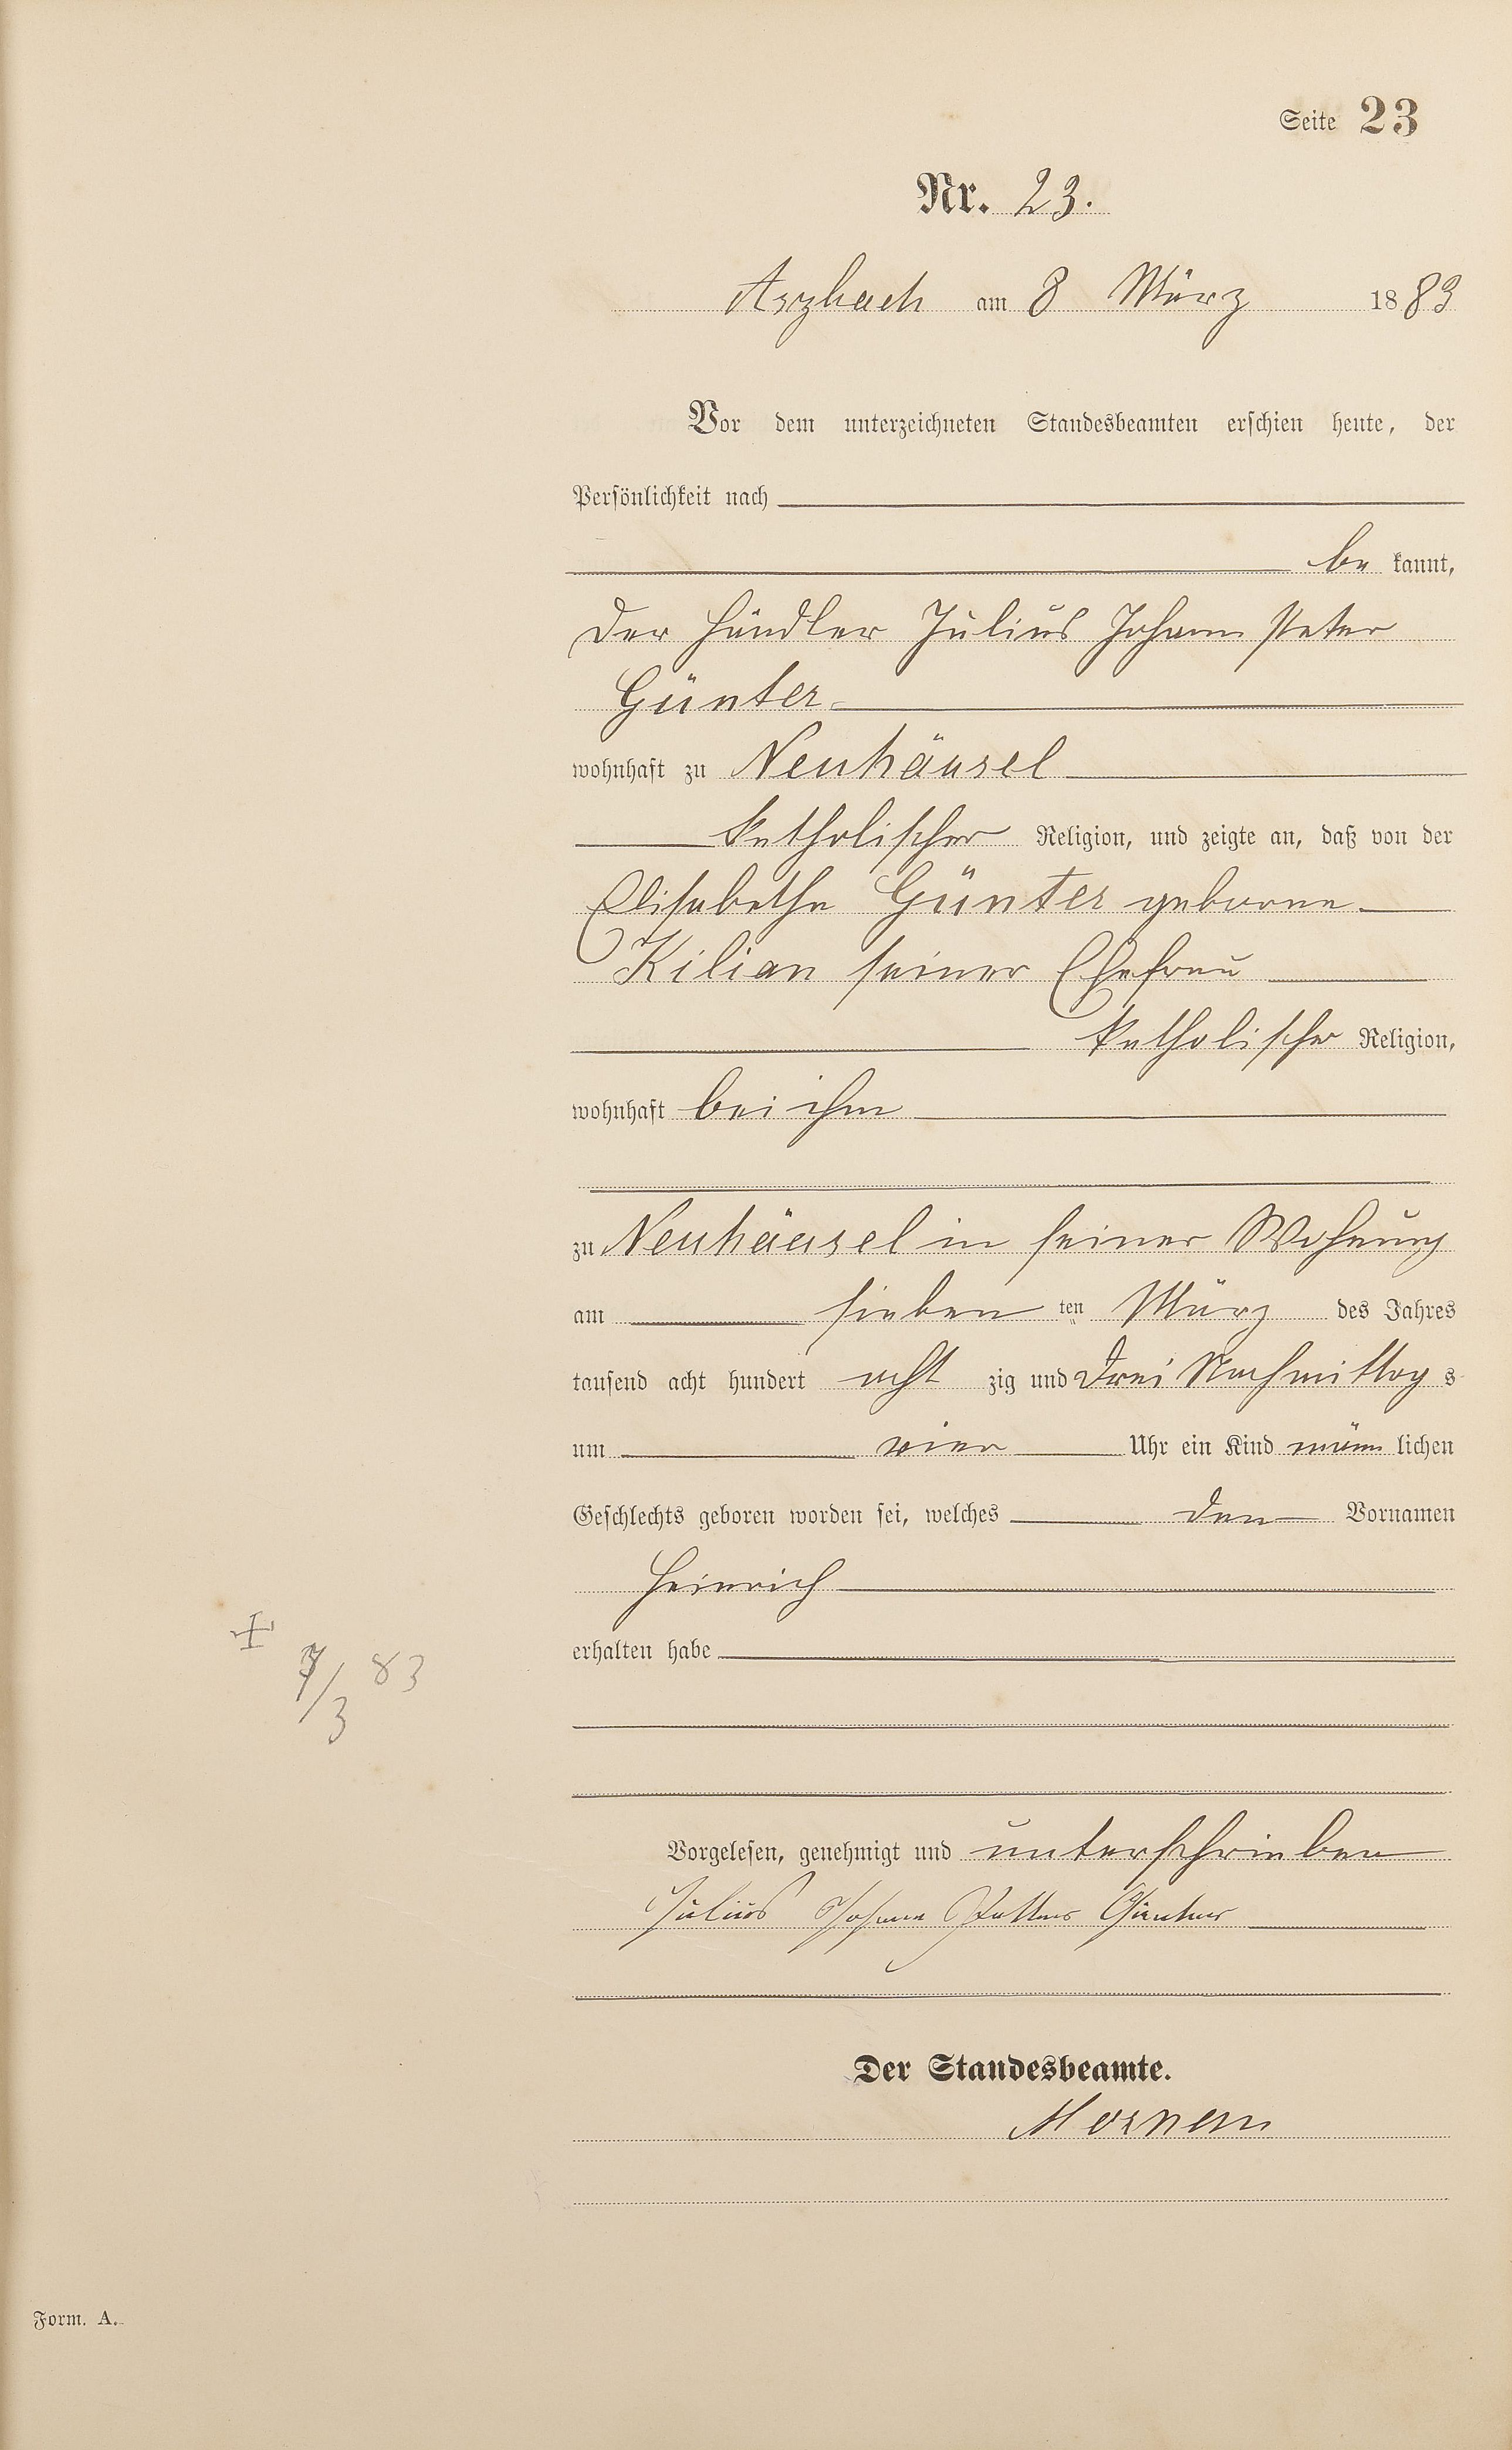 Seite 23
Nr. 23.
Arzbach am 8 März 1883
Vor dem unterzeichneten Standesbeamten erschien heute, der
Persönlichkeit nach
be kannt,
der Händler Julius Johann Peter
Günter
wohnhaft zu Neuhäusel
katholischer Religion, und zeigte an, daß von der
Elisabetha Günter geborne
Kilian seiner Ehefrau
katholischer Religion,
wohnhaft bei ihm
zu Neuhäusel in seiner Wohnung
am sieben ten März des Jahres
tausend acht hundert acht zig und drei Nachmittag s
um vier Uhr ein Kind männ lichen
Geschlechts geboren worden sei, welches den Vornamen
Heinrich
+
7/3 83
erhalten habe
Vorgelesen, genehmigt und unterschrieben
Julius Johann Günter
Der Standesbeamte.
Form. A.